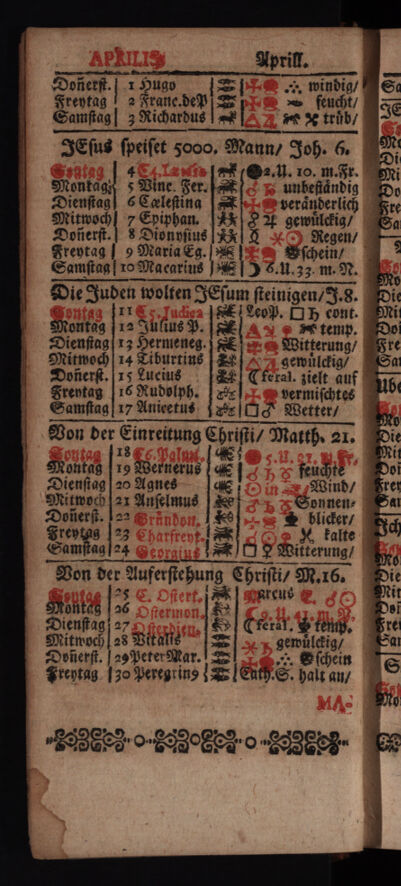 APRILIS Aprill.
Doñerst. 1 Hugo windig/
Freytag 2 Franc.deP feucht/
Samstag 3 Richardus trüb/
JEsus speiset 5000. Mann/ Joh. 6.
Sontag 4 C4. 2.U. 10. m.Fr.
Montag 5 Vinc. Fer. ♂ ♄ unbeständig
Dienstag 6 Cælestina veränderlich
Mitwoch 7 Epiphan. ♂ ♃ gewülckig/
Doñerst. 8 Dionysius ☿ ⚹☉ Regen/
Freytag 9 Maria Eg. schein/
Samstag 10 Macarius ☽ 6.U.33. m.N.
Die Juden wolten JEsum steinigen/J.8.
Sontag 11 C5. Judica Leop. □ ♄ cont.
Montag 12 Julius P. temp.
Dienstag 13 Hermeneg. Witterung/
Mitwoch 14 Tiburtius gewülckig/
Doñerst. 15 Lucius ☾ feral. zielt auf
Freytag 16 Rudolph. vermischtes
Samstag 17 Anicetus □♂ Wetter/
Von der Einreitung Christi/ Matth. 21.
Sontag 18 C6. Palmt. 5.U. 21. m.Fr.
Montag 19 Wernerus feuchte
Dienstag 20 Agnes ☉ in Wind/
Mitwoch 21 Anselmus Sonnen-
Doñerst. 22 Gründon. blicker/
Freytag 23 Charfreyt. kalte
Samstag 24 Georgius □ ♀ Witterung/
Von der Auferstehung Christi/ M.16.
Sontag 25 C. Ostert. Marcus ♂☉
Montag 26 Ostermon. ☾0.U.41. m.N.
Dienstag 27 Osterdien. ☾ feral. temp.
Mitwoch 28 Vitalis ⚹♄ gewülckig/
Doñerst. 29 PeterMar. schein
Freytag 30 Peregrin9 Cath.S. halt an/
MA-